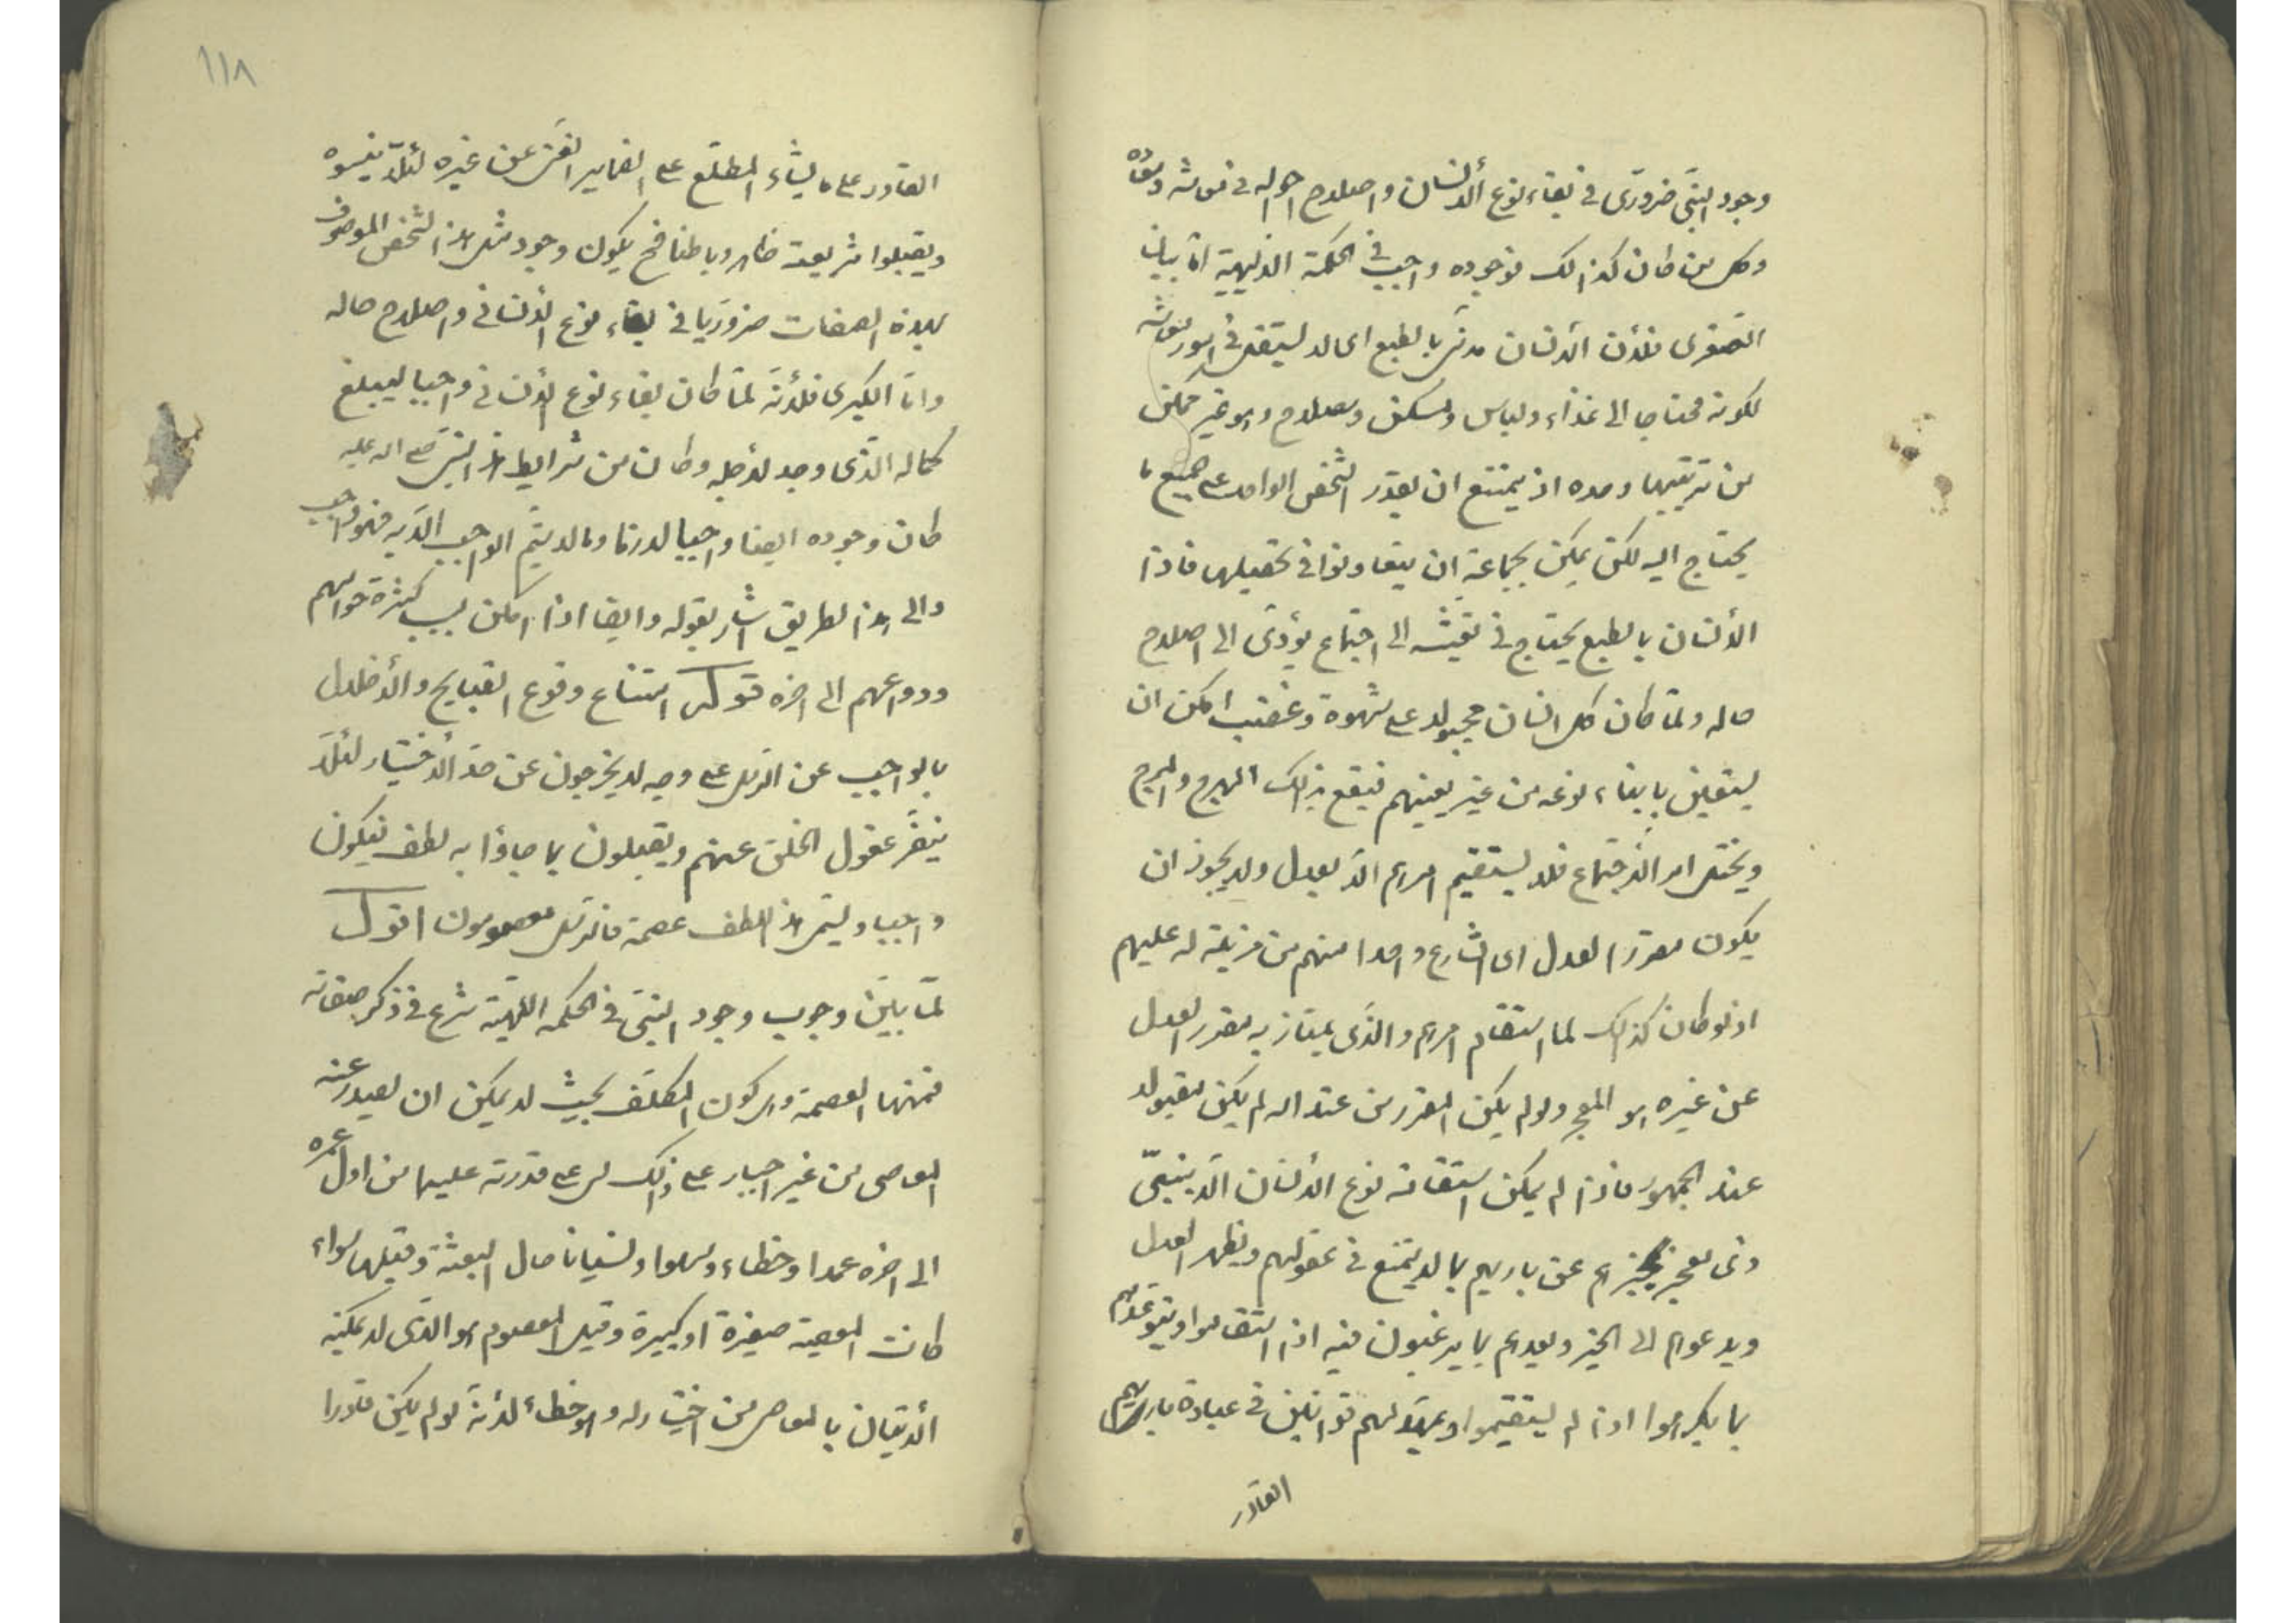 وجود النبّي ضروري في بقاء نوع الأنسان واصلاح احواله في معاشه ومعاده
وكل من كان كذالك فوجوده واجب في الحكمة الالهية امّا بيان
الصغرى فلأن الأنسان مدنّي بالطبع اى لا يستقل في امور معاشه
لكونه محتاجا الى غذاء ولباس ومسكن وسلاح وهو غير ممكن
من ترتيبها وحده اذ يمتنع ان يقدر الشخص الواحد على جميع ما
يحتاج اليه لكن يمكن بجماعة ان يتعاونوا في تحصيلها فاذا
الأنسان بالطبع يحتاج في تعيشه الى اجتماع يؤدّى الى اصلاح
حاله ولمّا كان كل انسان مجبولا على شهوة وغضب امكن ان
يستعين بابناء نوعه من غير يعينهم فيقع بذالك الهرج والمرج
ويختل امر الأجتماع فلا يستقيم امرهم الّا بعدل ولا يجوز ان
يكون مقرر العدل اى الشارع واحدا منهم من مزيّة له عليهم
اذ لو كان كذلك لما استقام امرهم والذّى يمتاز به مقرر العدل
عن غيره هو المعجز ولو لم يكن المقرر من عند اله لم يكن مقبولا
عند الجمهور فاذا لم يمكن استقامة نوع الأنسان الّا بنبيّ
ذى معجز يخبرهم عن باريهم بما لا يمتنع في عقولهم ويظهر العدل
ويدعوهم الى الخير ويعدهم بما يرغبون فيه اذا استقاموا ويتوعدهم
بما يكرهوا اذا لم يستقيموا ويمهّد لهم قوانين في عبادة باريهم
القادر
١١٨
القادر على ما يشاء المطلّع على الضماير الغنّي عن غيره لئلّا ينسوه
ويقبلوا شريعته ظاهر وباطنا فح يكون وجود مثل هذا الشخص الموصوف
بهذه الصفات ضروريّا في بقاء نوع الأنسانى واصلاح حاله
وامّا الكبرى فلأنّه لمّا كان بقاء نوع الأنسانى واجبا ليبلغ
كماله الذّى وجد لأجله وكان من شرايط هذا النبّي صلى اله عليه
كان وجوده ايضا واجبا لازما وما لا يتّم الواجب الّا به فهو واجب
والى هذا الطريق اشار بقوله وايضا اذا امكن بسبب كثرة حواسهم
ودواعيهم الى اخره قوله امتناع وقوع القبايح والأخلال
بالواجب عن الرسل على وجه لا يخرجون عن حدّ الأختيار لئلّا
ينفّر عقول الخلق عنهم ويقبلون بما جاؤا به لطف فيكون
واجبا ويسمّى هذا اللطف عصمة فالرسل معصومون اقول
لمّا بيّن وجوب وجود النبّي في الحكمة اللهيّة شرع في ذكر صفاته
فمنها العصمة وهى كون المكلّف بحيث لا يمكن ان يصدر عنه
المعاصى من غير اجبار على ذالك بل على قدرته عليها من اول عمره
الى اخره عمدا وخطاء وسهوا ونسيانا حال البعثة وقبلها سواء
كانت المعصية صغيرة او كبيرة وقيل المعصوم هو الذّى لا يمكنه
الأتيان بالمعاصى من اختيار له وهو خطاء لأنّه لو لم يكن قادرا